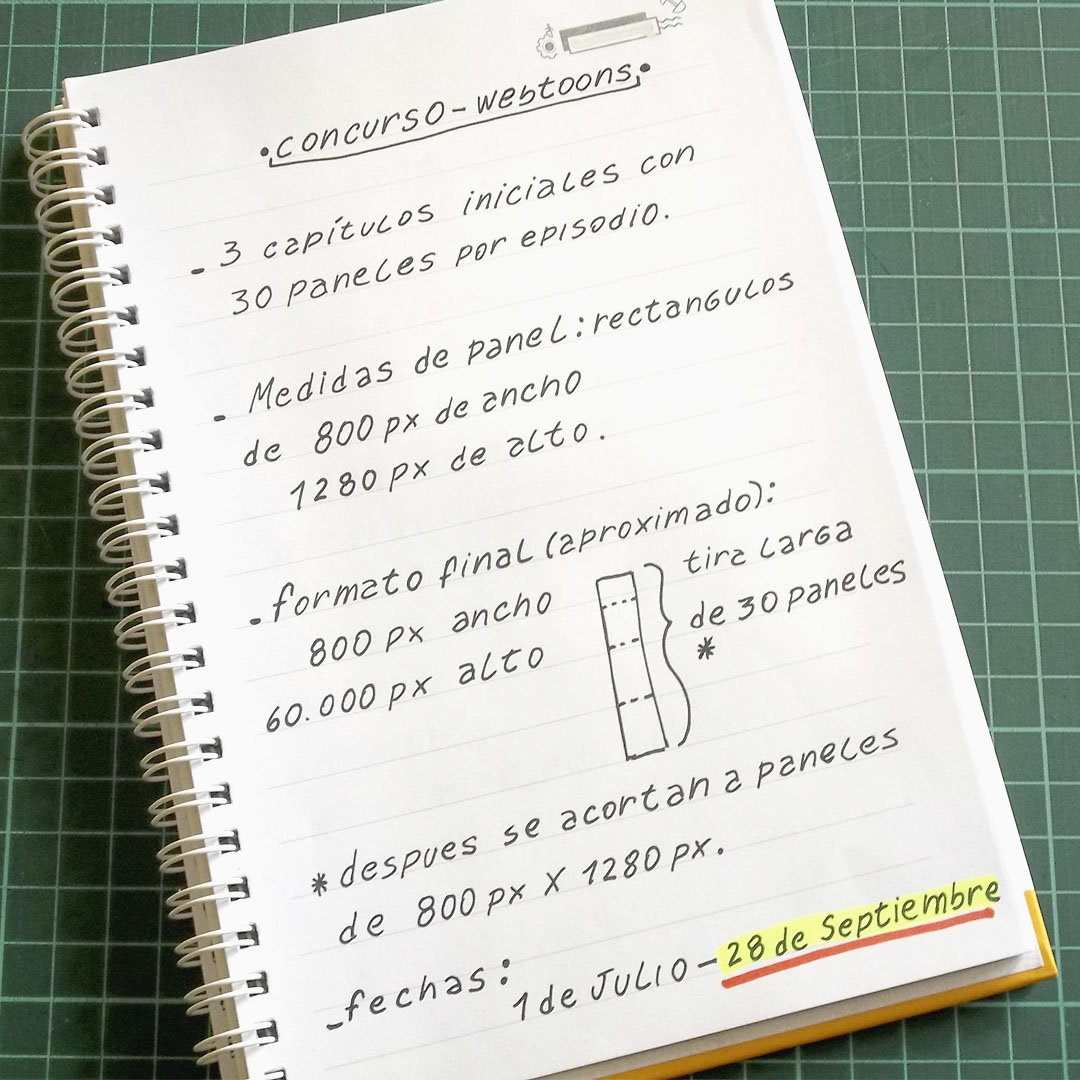 •concurso-webtoons•
- 3 capítulos iniciales con
30 paneles por episodio.
- Medidas de panel: rectangulos
de 800 px de ancho
1280 px de alto.
- formato final (aproximado):
800 px ancho
60.000 px alto
tira larga
de 30 paneles
*
* despues se acortan a paneles
de 800 px x 1280 px.
- fechas:
1 de Julio - 28 de Septiembre